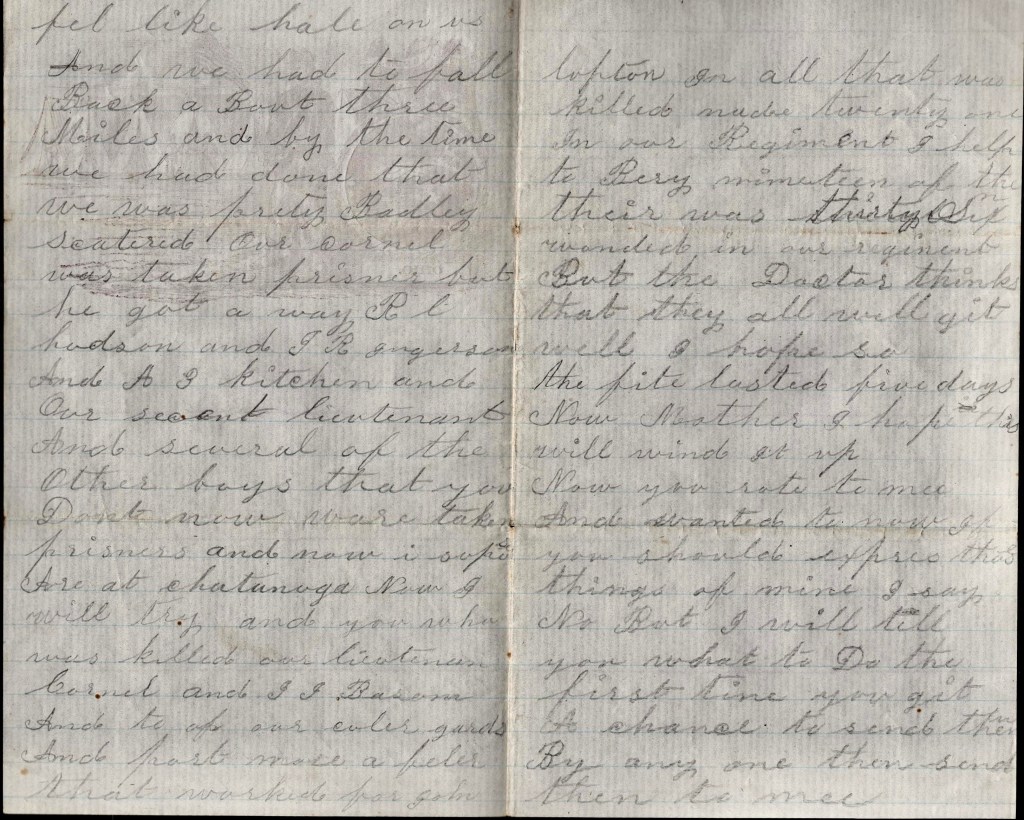 fel like hale on us
And we had to fall
Back a Bout three
Miles and by the time
we had done that
we was prety Badley
scatered Our cornel
was taken prisner but
he got a way R l
hudson and I R ingerson
And A J kitchen and
Our secont lieutenant
And several of the
Other boys that you
Dont now ware taken
prisners and now i sopose
Are at chatanoga Now I
will try and you who
was killed our lieutenan
Cornel and J J Basom
And to of our culer gards
And port mace a feler
that worked for john
lofton in all that was
killed nade twenty one
In our Regiment I help
to Bery nimeteen of them
their was thirty Six
wonded in our regiment
But the Doctor thinks
that they all will git
well I hope so
the fite lasted five days
Now Mother I hope this
will wind it up
Now you rote to mee
And wanted to now if
you should expres thos
things of mine I say
No But I will tell
you what to Do the
first time you git
A chance to send them
By any one then send
then to mee